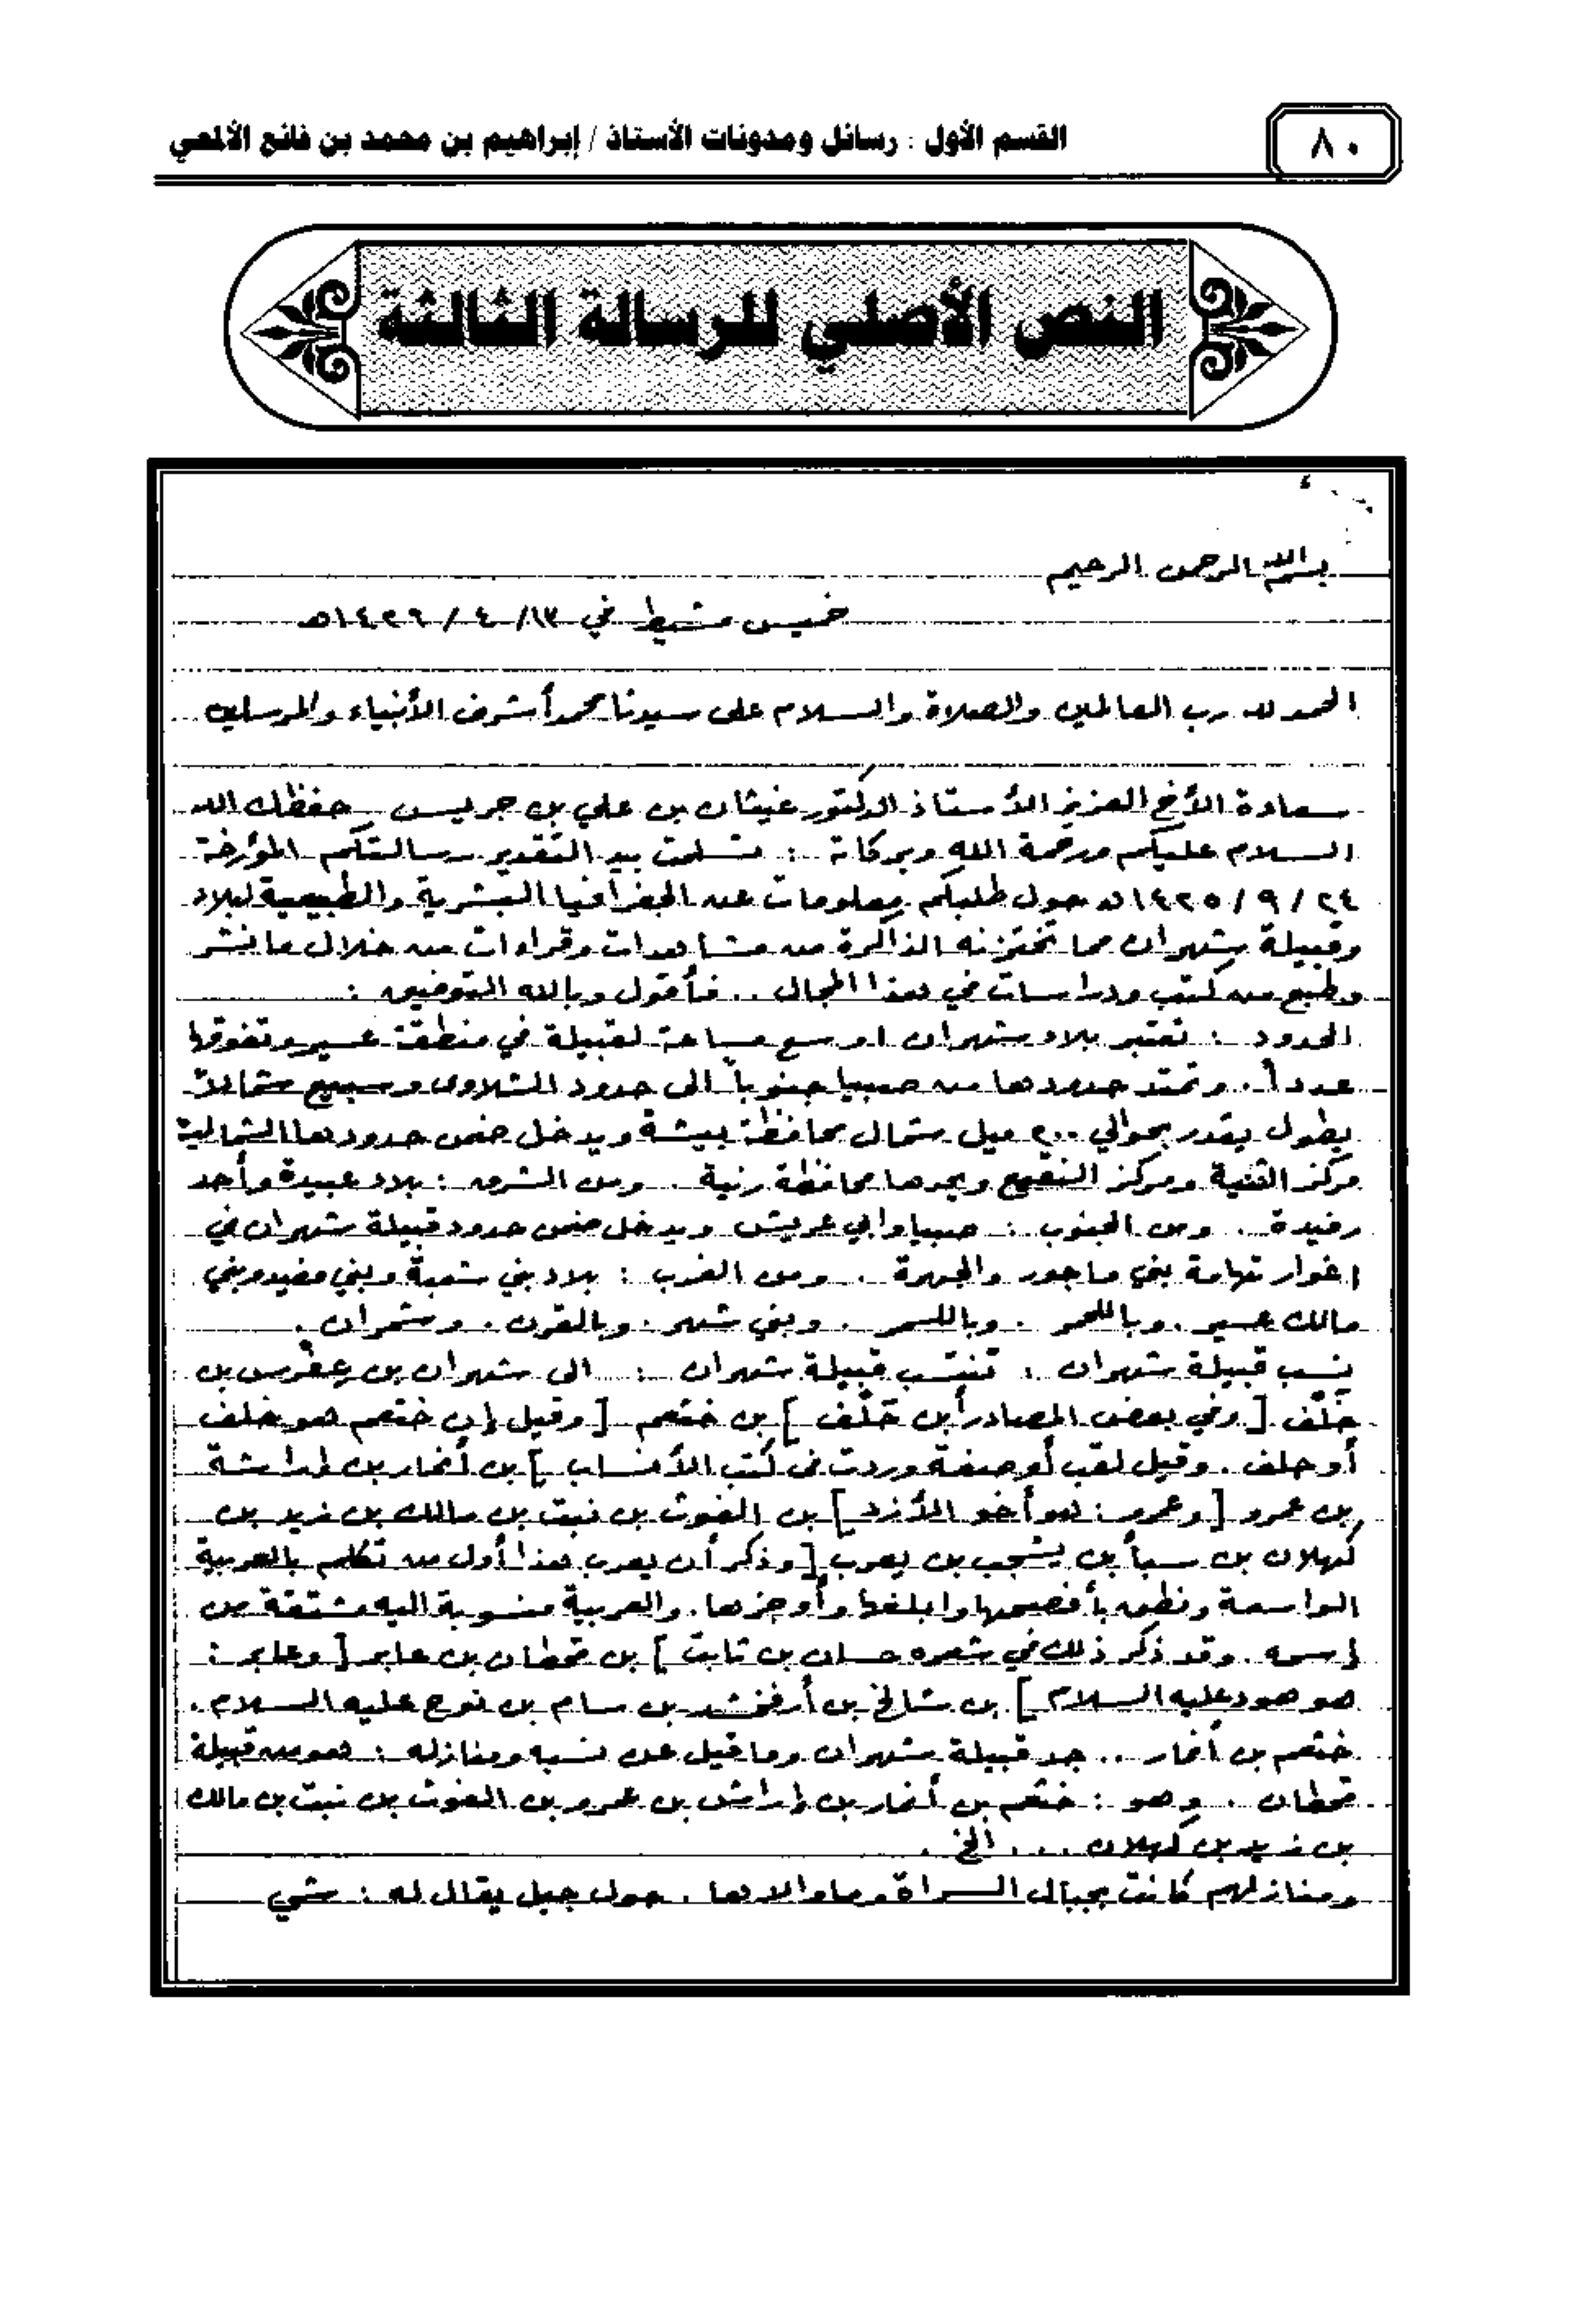 ٨٠
القسم الأول : رسائل ومدونات الأستاذ / إبراهيم بن محمد بن فائع الألمعي
النص الأصلي للرسالة الثالثة
بسم الله الرحمن الرحيم
خميس مشيط في ١٣/ ٤ / ١٤٢٦هـ
الحمد لله رب العالمين والصلاة والسلام على سيدنا محمد أشرف الأنبياء والمرسلين
سعادة الأخ العزيز الأستاذ الدكتور غيثان بن علي بن جريس حفظك الله
السلام عليكم ورحمة الله وبركاته : تسلمت بيد التقدير رسالتكم المؤرخة
٢٤ / ٩ / ١٤٢٥هـ حول طلبكم معلومات عن الجغرافيا البشرية والطبيعية لبلاد
وقبيلة شهران مما تختزنه الذاكرة من مشاهدات وقراءات من خلال ما نشر
وطبع من كتب ودراسات في هذا المجال .. فأقول وبالله التوفيق :
الحدود : تعتبر بلاد شهران اوسع مساحة لقبيلة في منطقة عسير وتفوقها
عدداً . وتمتد حدودها من صبيا جنوباً الى حدود الشلاوى وسبيع شمالاً
بطول يقدر بحوالي ٢٠٠ ميل شمال محافظة بيشة ويدخل ضمن حدودها الشمالية
مركز الثنية ومركز النقيع ويحدها محافظة رنية . ومن الشرق : بلاد عبيدة وأحد
رفيدة . ومن الجنوب : صبيا وابي عريش ويدخل ضمن حدود قبيلة شهران في
اغوار تهامة بني ماجور والجهرة . ومن الغرب : بلاد بني شعبة وبني مغيد وبني
مالك عسير . وباللحمر . وباللسمر . وبني شهر . وبالقرن . وشمران .
نسب قبيلة شهران : تنتسب قبيلة شهران : الى شهران بن عِفْرِس بن
خَلْف [ وفي بعض المصادر أبن حَلْف ] بن خثعم [ وقيل إن خثعم هو خلف
أو حلف . وقيل لقب أو صفة وردت في كتب الأنساب ] بن أنمار بن إراشة
بن عمرو [ وعمرو : هو أخو الأزد ] بن الغوث بن نبت بن مالك بن زيد بن
كهلان بن سبأ بن يشجب بن يعرب [ وذكر أن يعرب هذا أول من تكلم بالعربية
الواسعة ونطق بأفصحها وابلغها وأوجزها . والعربية منسوبة اليه مشتقة من
إسمه . وقد ذكر ذلك في شعره حسان بن ثابت ] بن قحطان بن عابر [ وعابر :
هو هود عليه السلام ] بن شالخ بن أرفخشد بن سام بن نوح عليه السلام .
خثعم بن أنمار .. جد قبيلة شهران وما قيل عن نسبه ومنازله : هو من قبيلة
قحطان . وهو : خثعم بن أنمار بن إراش بن عمرو بن الغوث بن نبت بن مالك
بن زيد بن كهلان ... الخ .
ومنازلهم كانت بجبال السراة وما والاها . حول جبل يقال له : شي